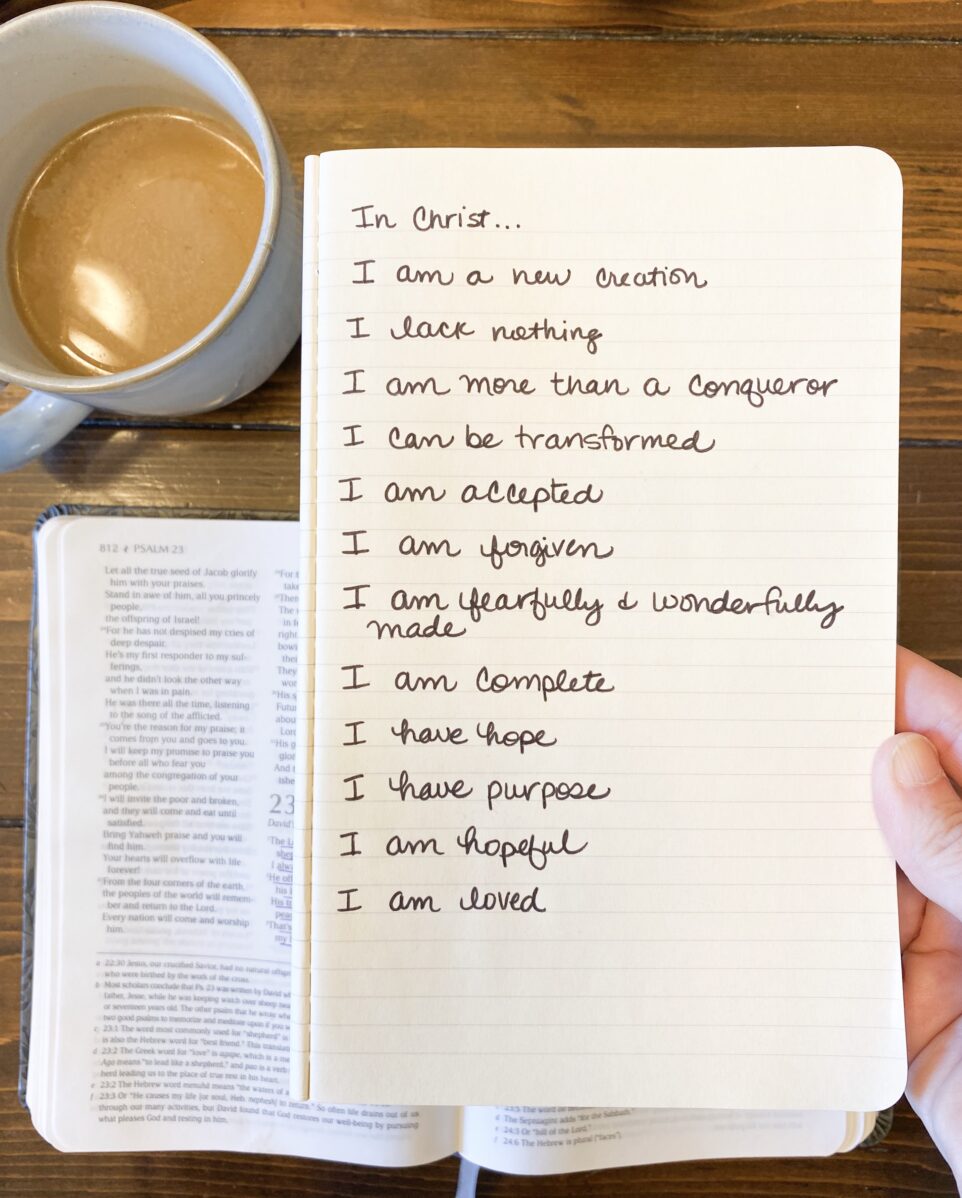 In Christ...
I am a new creation
I lack nothing
I am more than a conqueror
I can be transformed
I am accepted
I am forgiven
I am fearfully & wonderfully
made
I am complete
I have hope
I have purpose
I am hopeful
I am loved
812 PSALM 23
Let all the true seed of Jacob glorify
him with your praises.
Stand in awe of him, all you princely
people,
the offspring of Israel!
For he has not despised my cries of
deep despair.
He's my first responder to my suf-
ferings,
and he didn't look the other way
when I was in pain.
He was there all the time, listening
to the song of the afflicted.
You're the reason for my praise; it
comes from you and goes to you.
I will keep my promise to praise you
before all who fear you
among the congregation of your
people.
I will invite the poor and broken,
and they will come and eat until
satisfied.
Bring Yahweh praise and you will
find him.
Your hearts will overflow with life
forever!
From the four corners of the earth,
the peoples of the world will remem-
ber and return to the Lord.
Every nation will come and worship
him.
23
a 22:30 Jesus, our crucified Savior, had no natural
who were birthed by the work of the cross.
b Most scholars conclude that Ps. 23 was written by David
father, Jesse, while he was keeping watch over sheep
or seventeen years old. The other psalm that he wrote
two good psalms to memorize and meditate upon if you
c 23:1 The word most commonly used for "shepherd" is
is also the Hebrew word for "best friend." This
d 23:2 The Greek word for "love" is agape, which is a
Ago means "to lead like a shepherd," and pao is a verb
herd leading us to the place of true rest in his heart.
e 23:2 The Hebrew word menuhâ means "the waters of
f 23:3 Or "He causes my life [or soul, Heb. nephesh] to return." So often life drains out of us
through our many activities, but David found that God restores our well-being by pursuing
what pleases God and resting in him.
The Septuagint adds "for the Sabbath."
24:5 Or "hill of the Lord."
24:6 The Hebrew is plural ("faces").